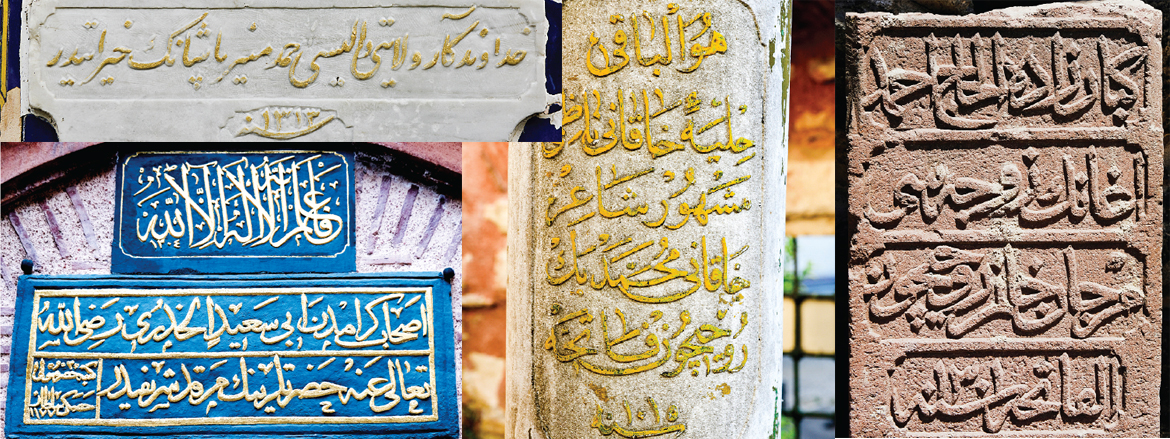 خداوندكار ولايتی والیسی احمد منیر پاشانك خیراتیدر
سنه ١٣١٣
فاعلم انه لا اله الا الله
اصحاب كرامدن ابی سعید الخدری رضی الله
تعالی عنه حضرتلرینك مرقد شریفیدر
هو الباقی
حلیهٔ خاقانی
مشهور شاعر
خاقانی محمد بك
روحیچون فاتحه
سنه ١٠١٥
زاده الحاج احمد
اغانك زوجه سی
مرجان خانم روحیچون
الفاتحه سنه